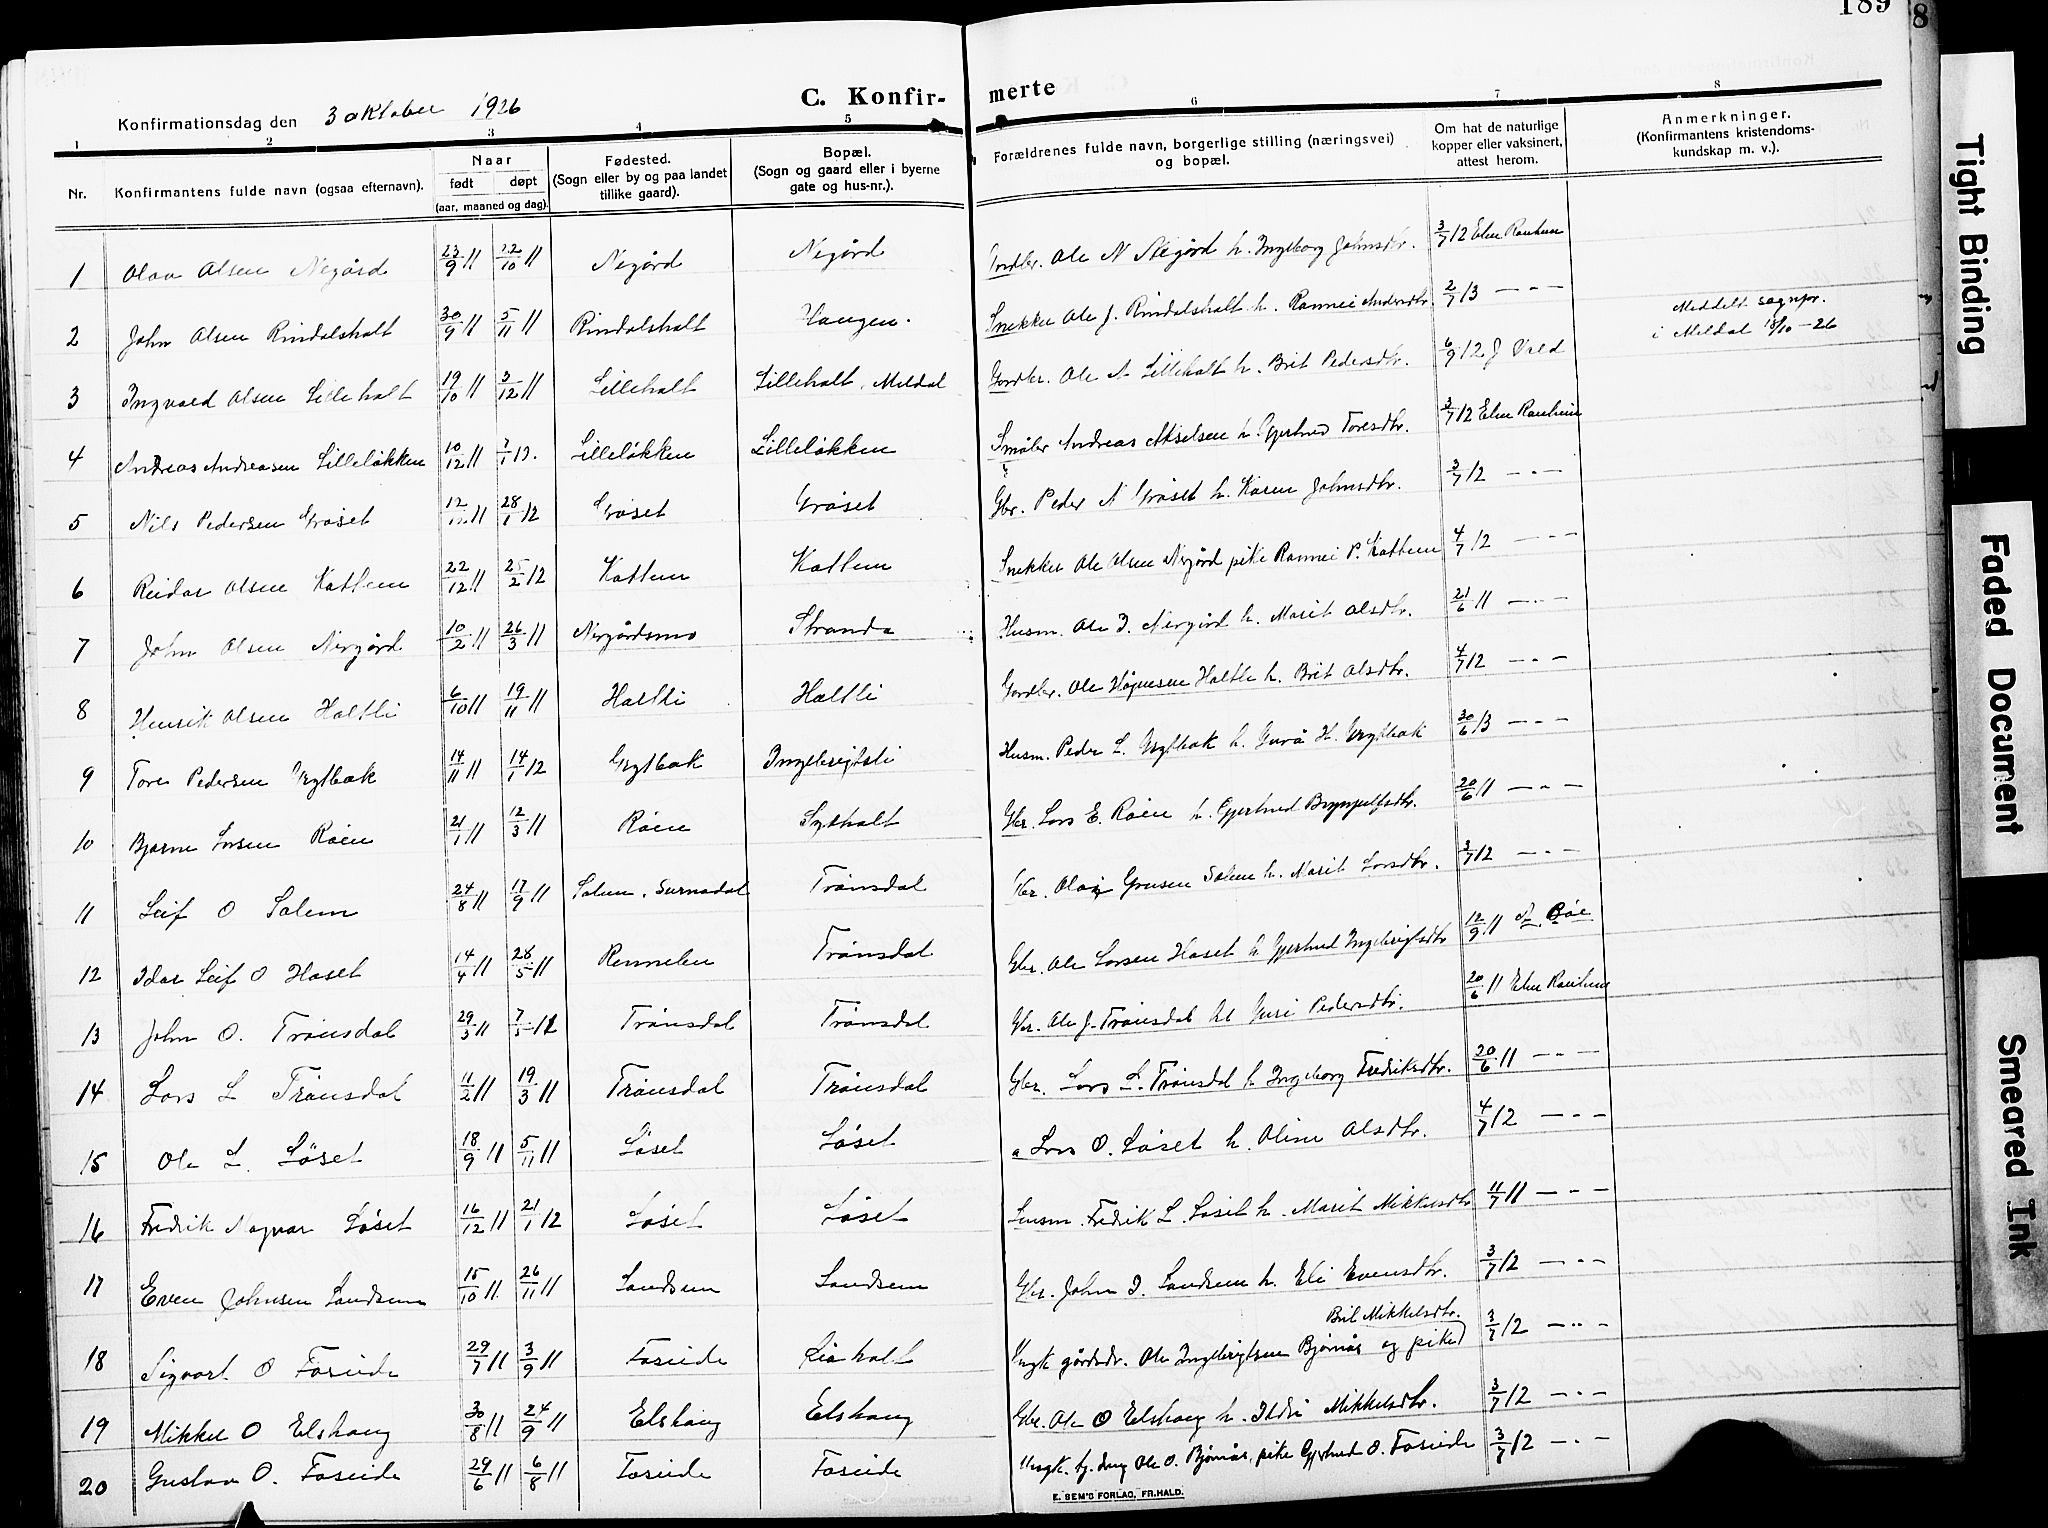 189
8
C. Konfir- merte
Konfirmationsdag den 3 oktober 1926
1 2 3 4 5 6 7 8
Nr. Konfirmantens fulde navn (ogsaa efternavn). Naar født døpt (aar, maaned og dag). Fødested. (Sogn eller by og paa landet tillike gaard). Bopæl. (Sogn og gaard eller i byerne gate og hus-nr.). Forældrenes fulde navn, borgerlige stilling (næringsvei) og bopæl. Om hat de naturlige kopper eller vaksinert, attest herom. Anmerkninger. (Konfirmantens kristendoms- kundskap m. v.).
1 Olav Olsen Negård 23/9 11 22/10 11 Negård Negård Gardbr. Ole N Negård h. Ingeborg Johnsdtr. 3/7 12
2 John Olsen Rindalsholt 30/9 11 5/11 11 Rindalsholt Haugen. Snekker Ole J. Rindalsholt h. Rannei Andersdtr. 2/7 13 — " —
Meddelt sognpr. i Meldal 18/10 - 26
3 Ingvald Olsen Lilleholt 19/10 11 3/12 11 Lilleholt Lilleholt, Meldal Gardbr. Ole A Lilleholt h. Brit Pedersdtr. 6/9 12 J Vald
4 Andreas Andreasen Lilleløkken 10/12 11 7/1 12. Lilleløkken Lilleløkken Småbr Andreas Akselsen h. Gjertrud Toresdtr. 3/7 12
5 Nils Pedersen Grøset 12/11 11 28/1 12 Grøset Grøset Gbr. Peder N Grøset h. Karen Johnsdtr. 3/7 12 — " —
6 Reidar Olsen Kattem 22/12 11 25/2 12 Kattem Kattem Snekker Ole Olsen Nergård pike Rannei P. Kattem 4/7 12 — " —
7 John Olsen Nergård 10/2 11 26/3 11 Nergårdsmo Stranda Husm. Ole I. Nergård h. Marit Olsdtr. 21/6 11 — " —
8 Henrik Olsen Holtli 6/10 11 19/11 11 Holtli Holtli Gardbr. Ole Høgnesen Holtli h. Brit Olsdtr. 4/7 12 — " —
9 Tore Pedersen Grytbak 14/11 11 14/1 12 Grytbak Ingebrigtsli Husm. Peder L. Grytbak h. Gurå H. Grytbak 30/6 13 — " —
10 Bjarne Larsen Røen 21/1 11 12/3 11 Røen Sydholt Gbr. Lars E. Røen h. Gjertrud Brynjulfsdtr. 20/6 11 — " —
11 Leif O Solem 24/8 11 17/9 11 Solem, Surnadal Trønsdal Gbr. Ola Gonsen Solem h. Marit Larsdtr. 3/7 12 — " —
12 Idar Leif O Haset 14/4 11 28/5 11 Rennelen Trønsdal Gbr. Ole Larsen Haset h. Gjertrud Ingebrigtsdtr 12/9 11
13 John O. Trønsdal 29/3 11 7/5 12 Trønsdal Trønsdal Gbr. Ole J. Trønsdal h. Guri Pedersdtr. 20/6 11
14 Lars L Trønsdal 11/2 11 19/3 11 Trønsdal Trønsdal Gbr. Lars L. Trønsdal h Ingeborg Fredriksdtr. 20/6 11 — " —
15 Ole L. Løset 18/9 11 5/11 11 Løset Løset " Lars O. Løset h. Oline Olsdtr. 4/7 12 — " —
16 Fredrik Magnar Løset 16/12 11 21/1 12 Løset Løset Lensm. Fredrik L. Løset h. Marit Mikkelsdtr 11/7 11 — " —
17 Even Johnsen Landsem 15/10 11. 26/11 11 Landsem Landsem Gbr. John I. Landsem h. Eli Evensdtr. 3/7 12 — " —
18 Sigvart O Foseide 29/7 11 3/9 11 Foseide Liaholt Ungk gårdsdr. Ole Ingebrigtsen Bjørnås og pike Brit Mikkelsdtr. 3/7 12 — " —
19 Mikkel O Elshaug 30/8 11 24/9 11 Elshaug Elshaug Gbr. Ole O Elshaug h. Ildri Mikkelsdtr. 3/7 12 — " —
20 Gustav O. Foseide 29/6 11 6/8 11 Foseide Foseide Ungk. Ole O. Bjørnås, pike Gjertrud O. Foseide 3/7 12 — " —
E. SEM'S FORLAG, FR.HALD.
Tight Binding
Faded Document
Smeared Ink